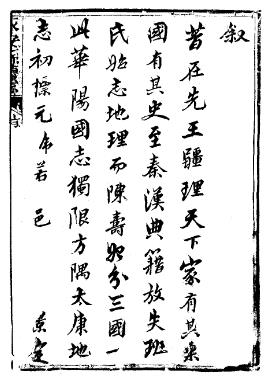 叙
昔在先王疆理天下家有其乘
國有其史至秦漢典籍放失班
氏始志地理而陳壽分三國一
此華陽國志獨限方隅太康地
志初標元若邑 景定